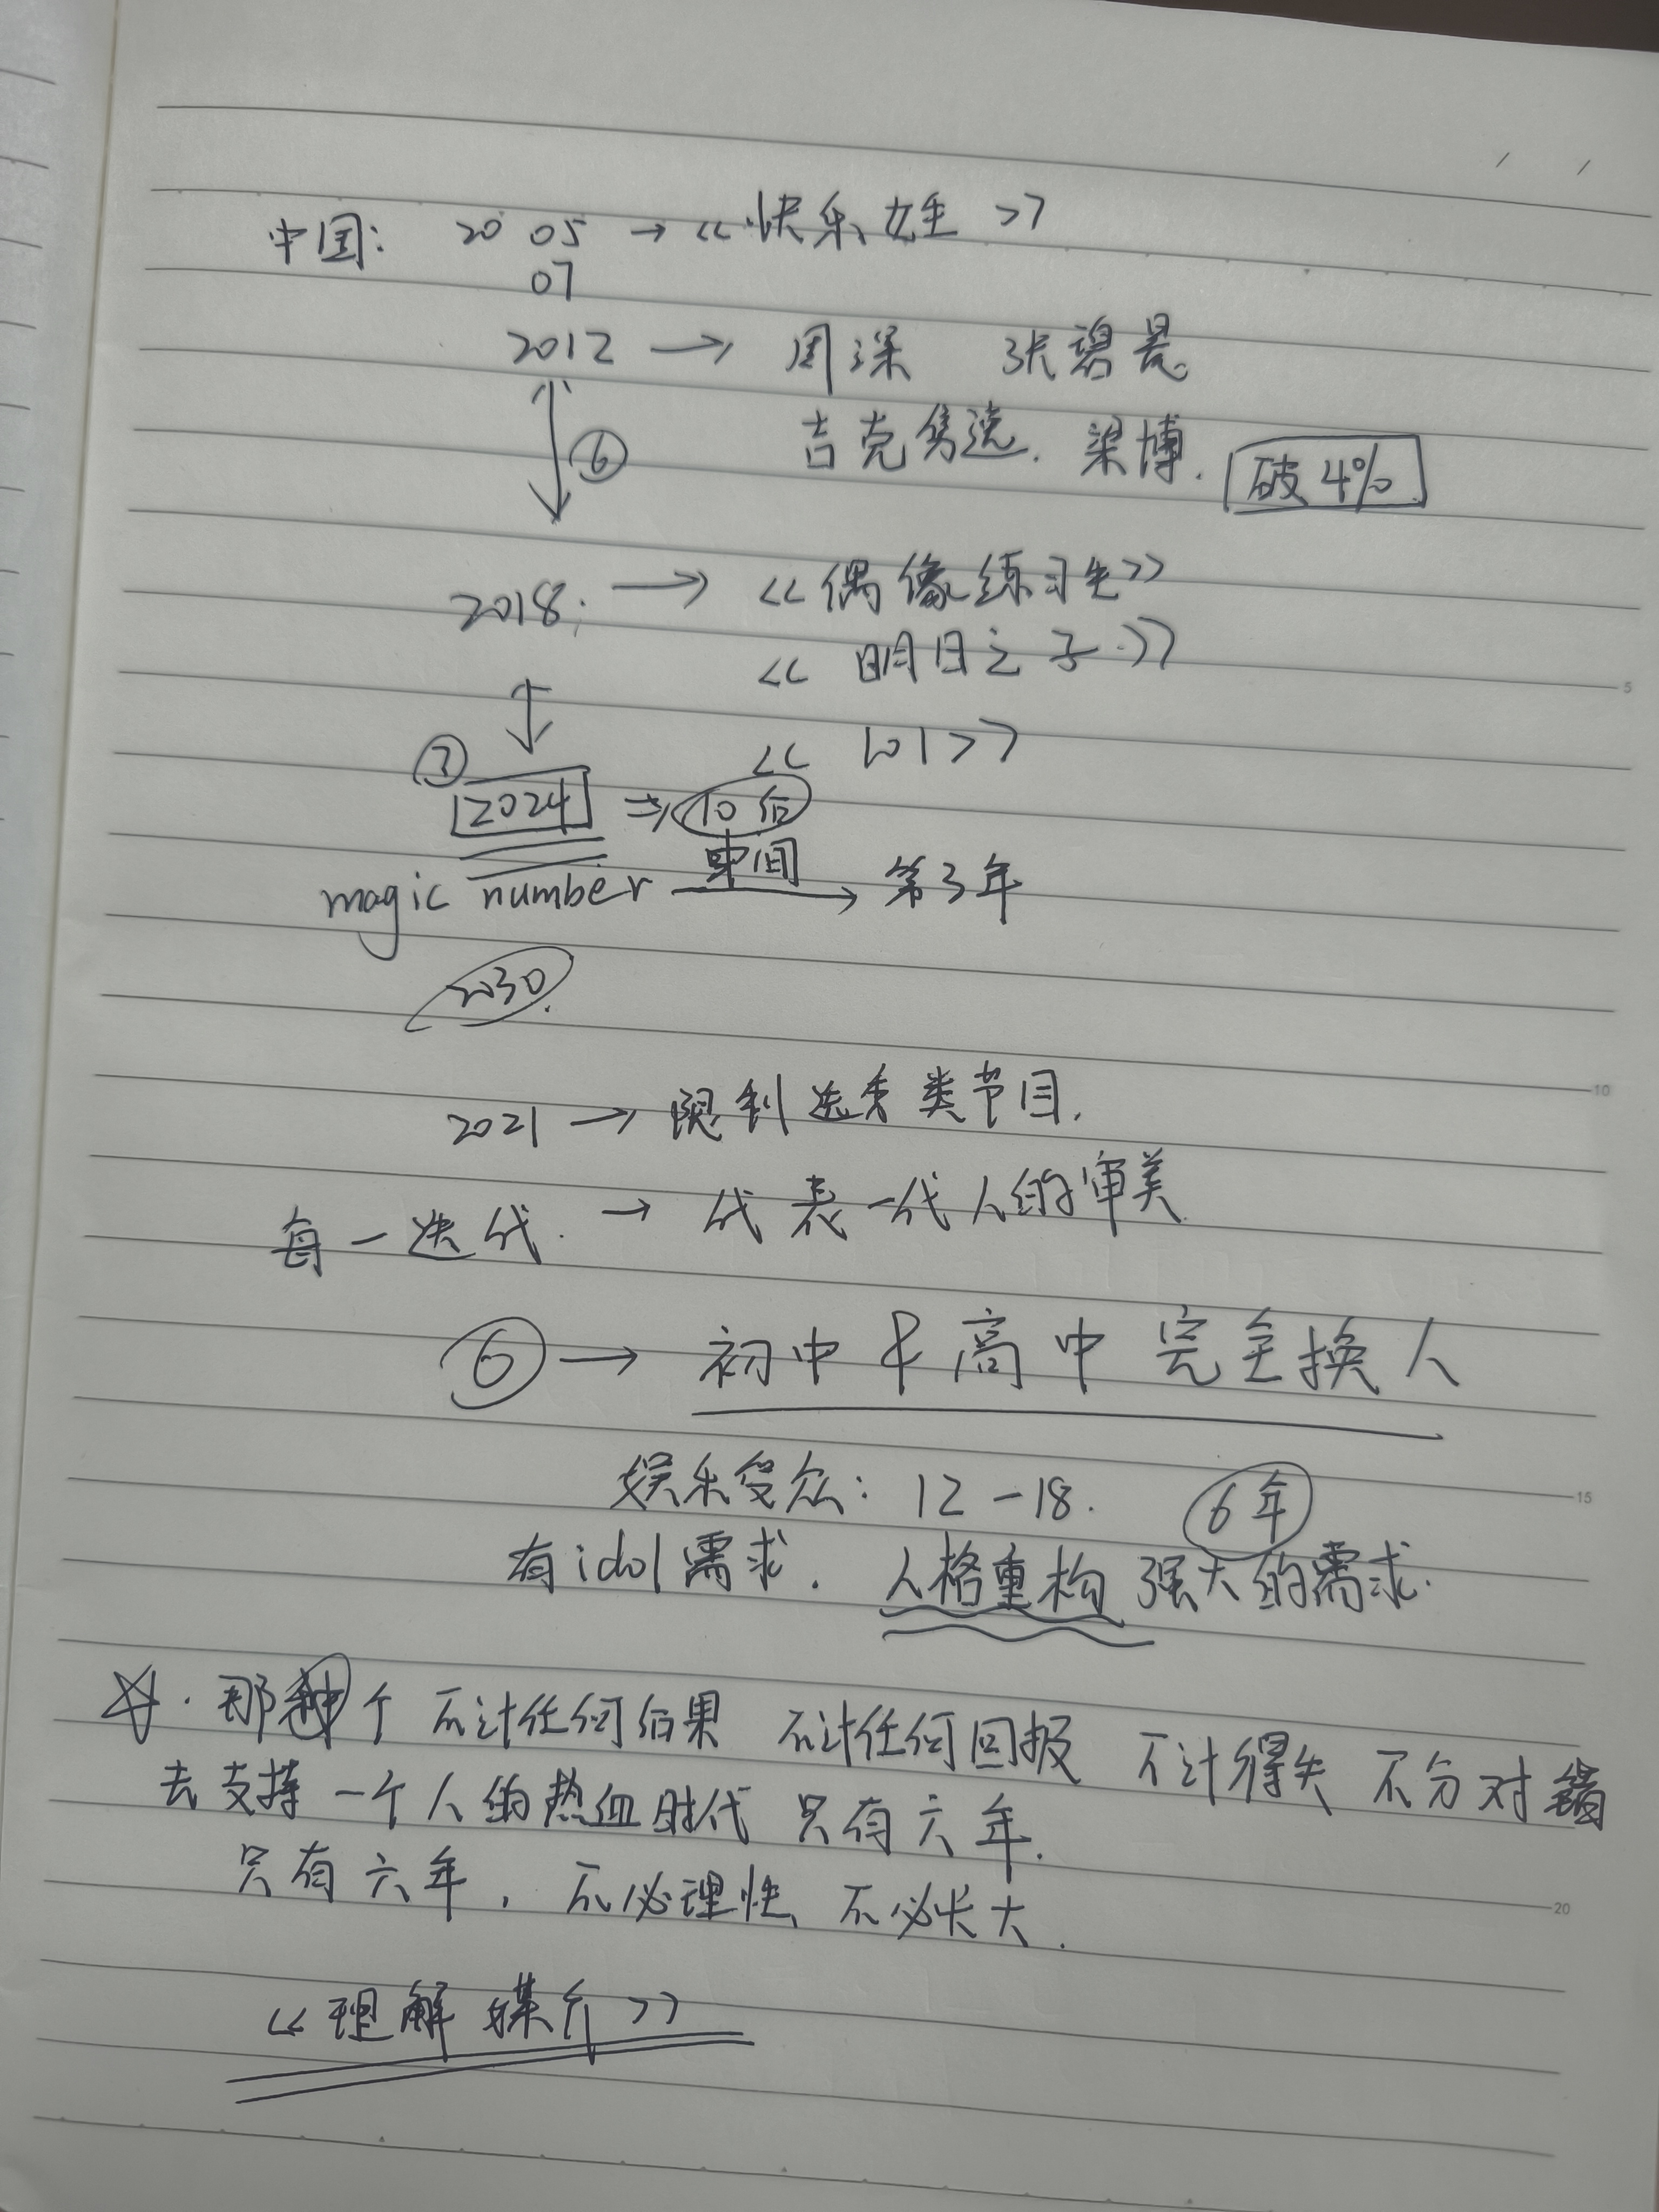 中国: 2005 → 《快乐女生》
07
2012 → 周深 张碧晨
吉克隽逸. 梁博. 破4%
⑥
2018: → 《偶像练习生》
《明日之子》
《101》
③
2024 ⇒ 10后
magic number 中间 → 第3年
2030.
2021 → 限制选秀类节目.
每一迭代. → 代表一代人的审美
⑥ → 初中&高中 完全换人
娱乐受众: 12-18. 6年
有idol需求. 人格重构 强大的需求.
☆. 那个 不计任何后果 不计任何回报 不计得失 不分对错
去支持一个人的热血时代 只有六年.
只有六年, 不必理性、不必长大.
《理解媒介》